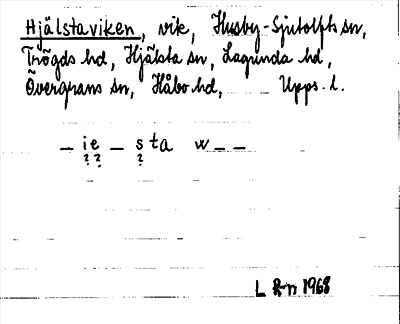 Hjälstaviken, vik, Husby-Sjutolfts sn,
Trögds hd, Hjälsta sn, Lagunda hd,
Övergrans sn, Håbo hd, Upps. l.
– ie – sta w – –
? ? ?
L R-n 1968